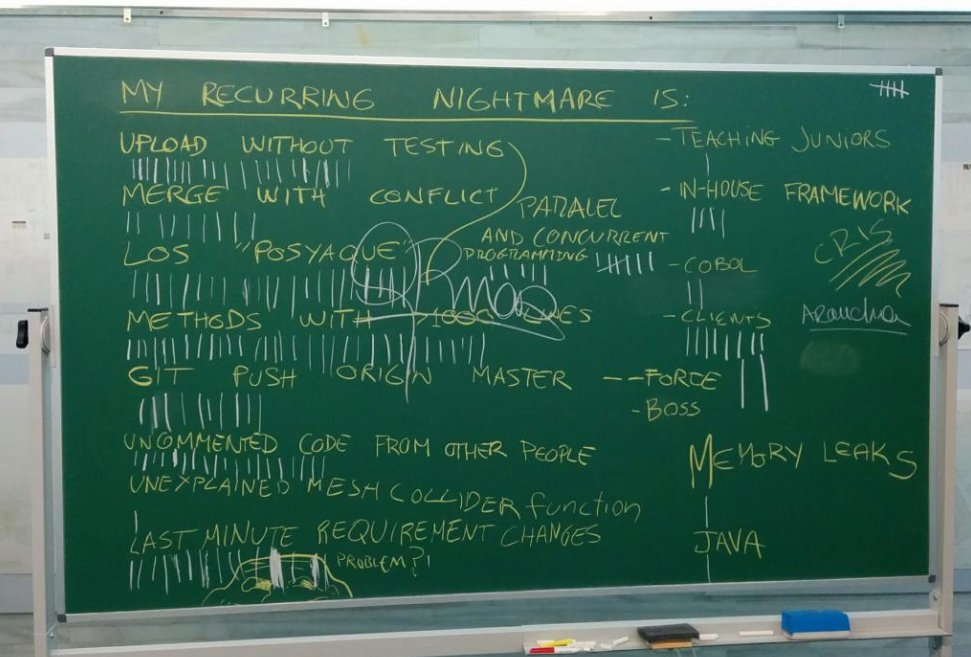 MY RECURRING NIGHTMARE IS:
UPLOAD WITHOUT TESTING
MERGE WITH CONFLICT
PARALEL
AND CONCURRENT
PROGRAMMING
LOS "POSYAQUE"
METHODS WITH 1000 LINES
GIT PUSH ORIGIN MASTER --FORCE
- BOSS
UNCOMMENTED CODE FROM OTHER PEOPLE
UNEXPLAINED MESH COLLIDER function
LAST MINUTE REQUIREMENT CHANGES
PROBLEM?
- TEACHING JUNIORS
- IN-HOUSE FRAMEWORK
- COBOL
- CLIENTS
CRIS
Arancha
MEMORY LEAKS
JAVA